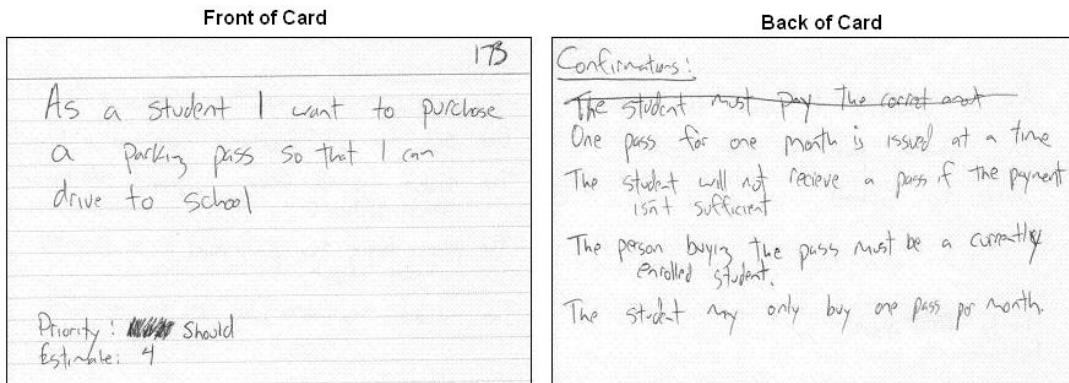 Front of Card
173
As a student I want to purchase
a parking pass so that I can
drive to school
Priority: Should
Estimate: 4
Back of Card
Confirmations:
The student must pay the corret
One pass for one month is issued at a time
The student will not recieve a pass if the payment
isn't sufficient
The person buying the pass must be a currently
enrolled student.
The student may only buy one pass per month.